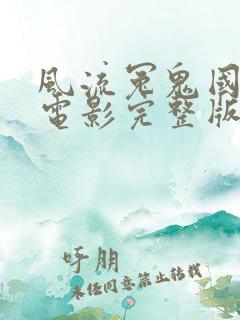 風流冤鬼國
電影完整版
呼朋
未经同意禁止转载